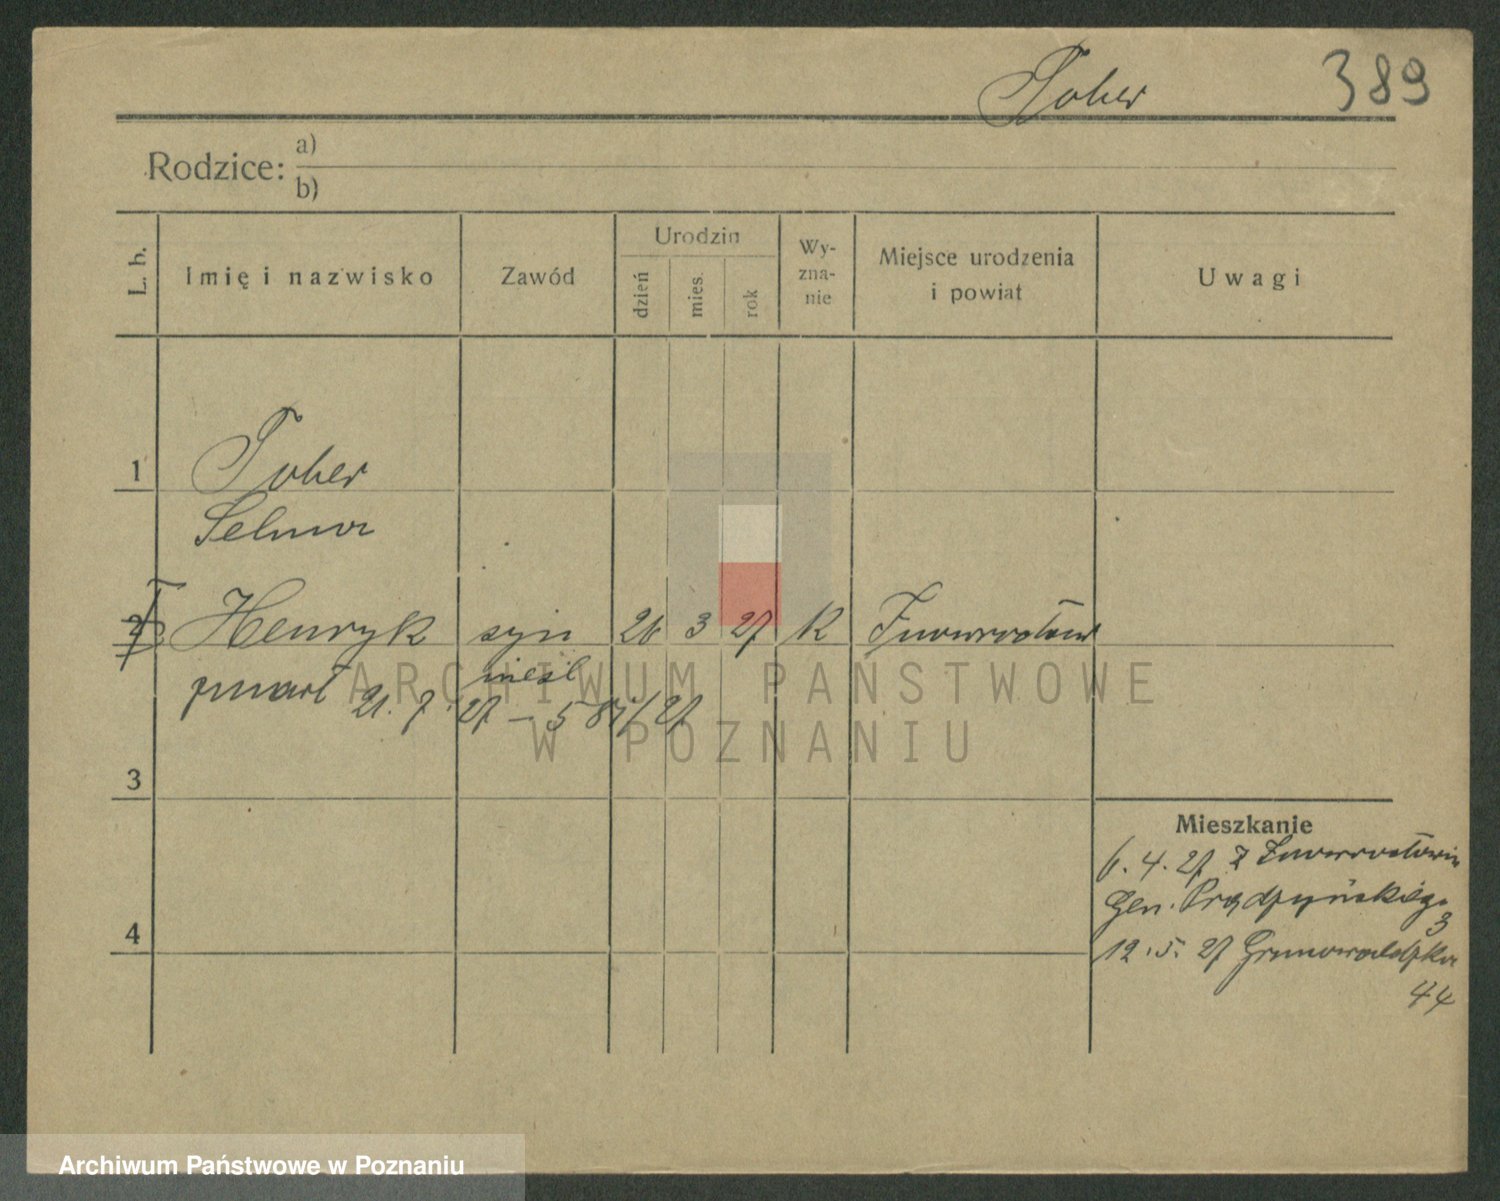 Tober 389
Rodzice: a)
b)
L. b. Imię i nazwisko Zawód Urodzin dzień mies. rok Wy-zna-nie Miejsce urodzenia i powiat Uwagi
1 Tober
Selma
2 Henryk syn 26 3 27 K Inowrocław
zmarł 21. 7. 27 – 587/27
nieśl
ARCHIWUM PAŃSTWOWE
W POZNANIU
3
4
Mieszkanie
6. 4. 27 z Inowrocławia
Gen. Prądzyńskiego
3
12. 5. 27 Grunwaldzka
44
Archiwum Państwowe w Poznaniu